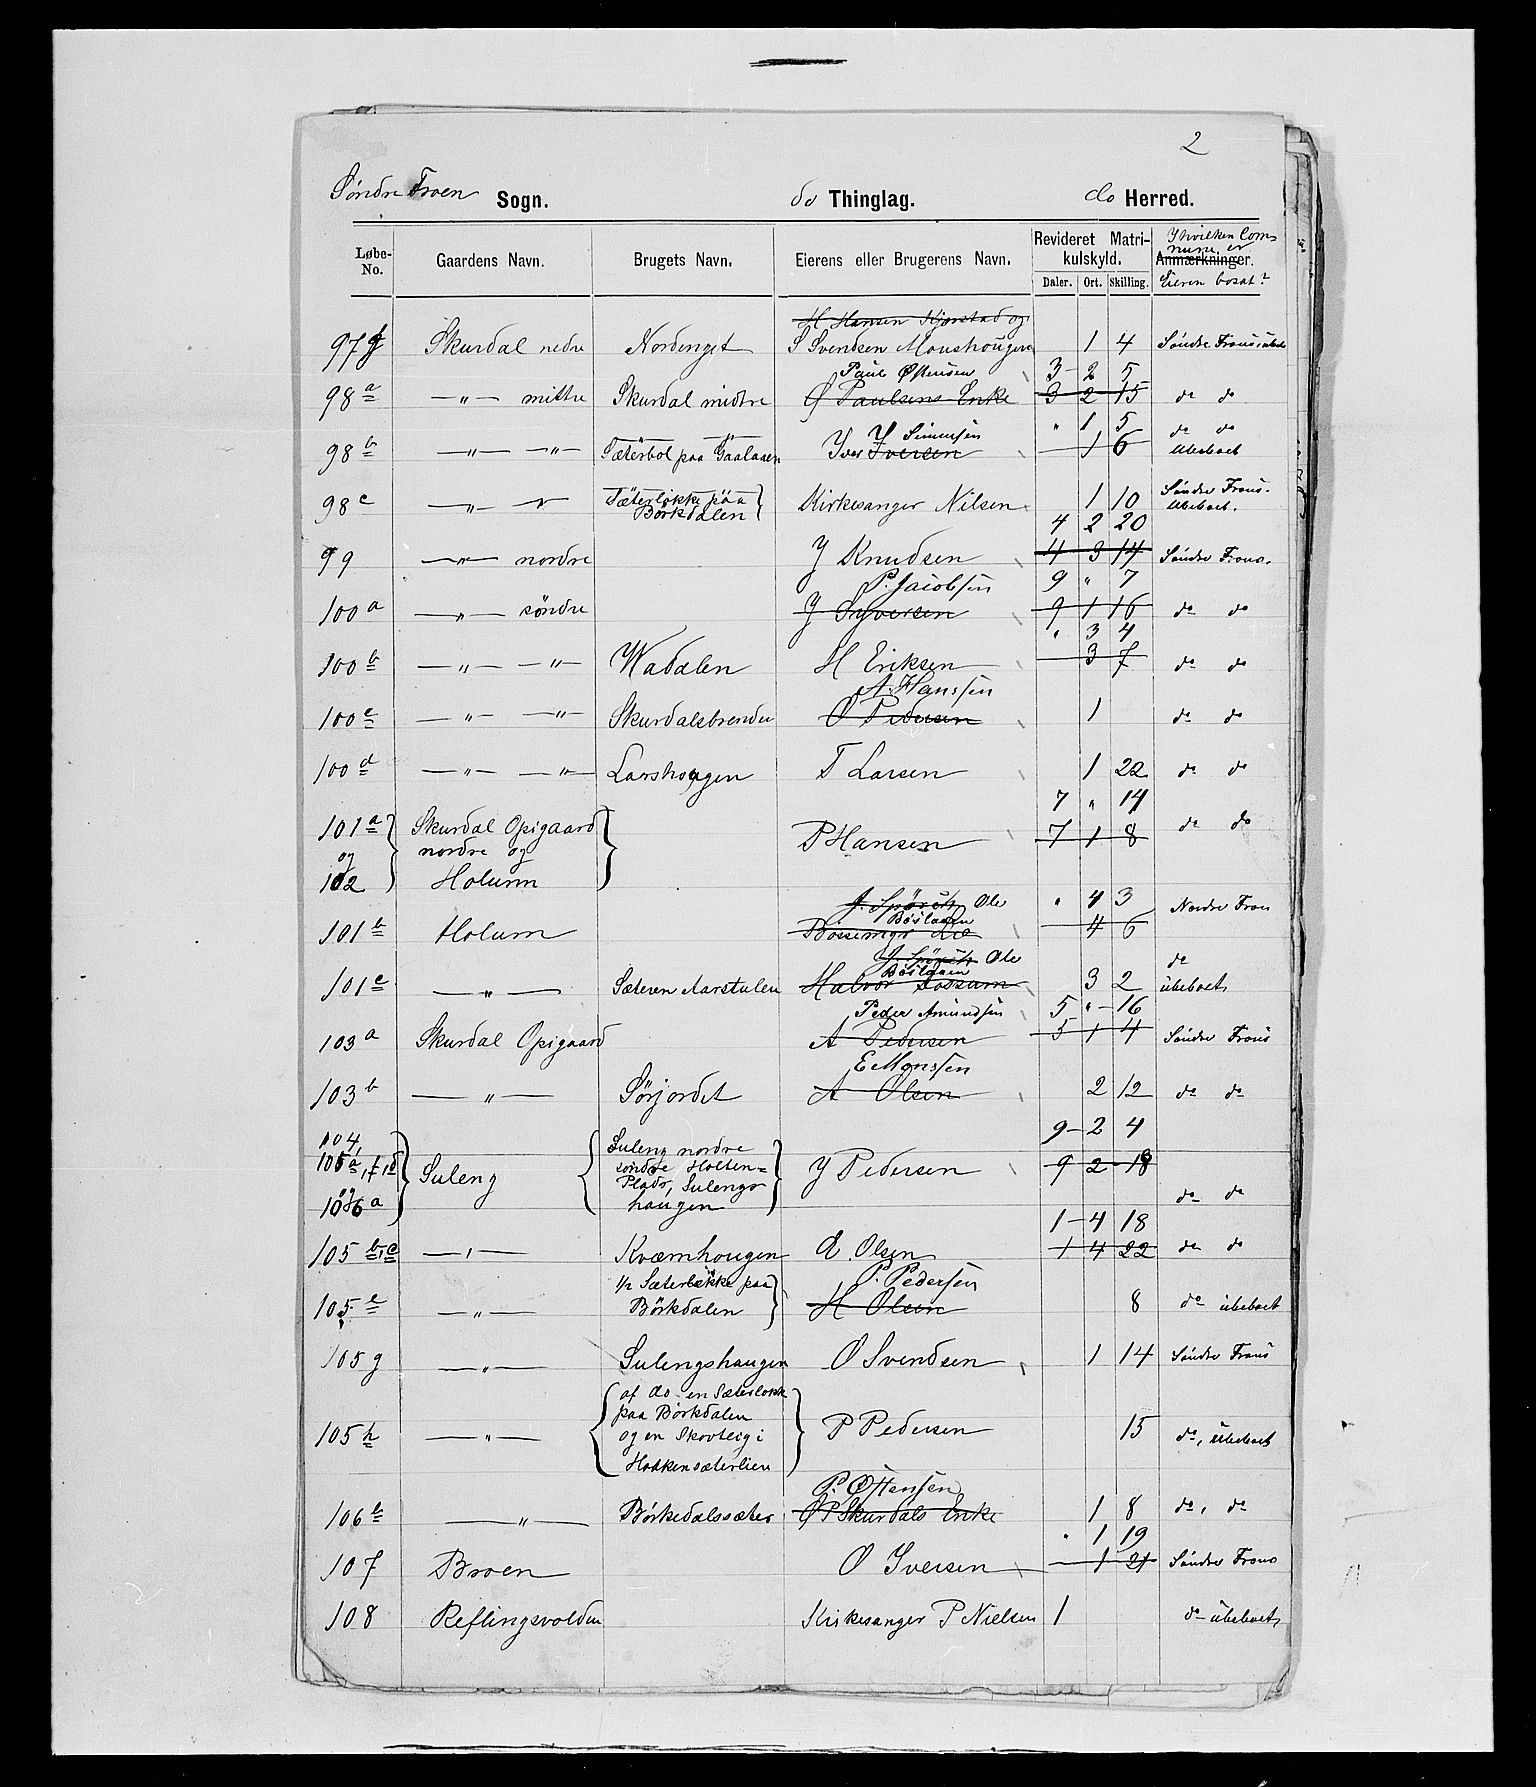 2
Søndre Froen Sogn. do Thinglag. do Herred.
Løbe-No. Gaardens Navn. Brugets Navn. Eierens eller Brugerens Navn. Revideret Matri-kulskyld. Daler. Ort. Skilling. Anmærkninger. I hvilken Commune er Eieren bosat?
H Hansen Kjørstad og
97 f Skurdal nedre Nordenget S Svendsen Monshougen 1 4 Søndre Frons, ubeb
Paul Østensen 3 - 2 5
98 a — " — mittre Skurdal midtre Ø Paulsens Enke 3 2 15 do do
Y Simensen " 1 5 do do
98 b — " — — " — Sæterbol paa Gaalaaen Iver Iversen 1 6 ubeboet
98 c — " — Sæterløkke paa Børkdalen Kirkesanger Nilsen 1 10 Søndre Frons. Ubeboet.
4 2 20
99 — " — nordre J Knudsen 4 3 14 Søndre Frons.
P. Jacobsen 9 " 7
100 a — " — søndre J Syversen 9 1 16 do do
" 3 4
100 b — " — — " — Wadalen H Eriksen 3 7 do do
A. Hanssen
100 c — " — — " — Skurdalsbrenden O Pedersen 1 do do
100 d — " — — " — Larshougen T Larsen 1 22 do do
7 " 14
101 a og 102 Skurdal Opigaard nordre og Holum P Hansen 7 1 8 do do
Ole Böslaaen " 4 3 Nordre Fron
101 b Holum 4 6
Ole Böslaaen do
101 c — " — Sæteren Aarstulen Halvor Fossum 3 2 ubeboet
Peder Amundsen 5 " - 16
103 a Skurdal Opigaard A Pedersen 5 1 4 Søndre Frons
E Monssen
103 b — " — Sørjordet A Olsen 2 12 do do
9 - 2 4
104, 105 a, f, d og 106 a Suleng Suleng nordre søndre Holten=Plads, Sulengshaugen J Pedersen 9 2 - 18 do do
1 - 4 18
105 b, c — " — Kvæmhougen E. Olsen 1 4 22 do do
P. Pedersen
105 e — " — 1/2 Sæterløkke paa Børkdalen H Olsen 8 do ubeboet
105 g — " — Sulengshaugen O Svendsen 1 14 Søndre Frons
105 h — " — af do en Sæterløkk paa Børkdalen og en Skovteig i Hodkensæterlien P Pedersen 15 do, ubeboet
P. Østensen
106 b — " — Børkedalssæter Ø P Skurdals Enke 1 8 do, do
" 1 19
107 Broen O Iversen 1 21 Søndre Frons
108 Reflingsvolden Kirkesanger P Nielsen 1 do ubeboet